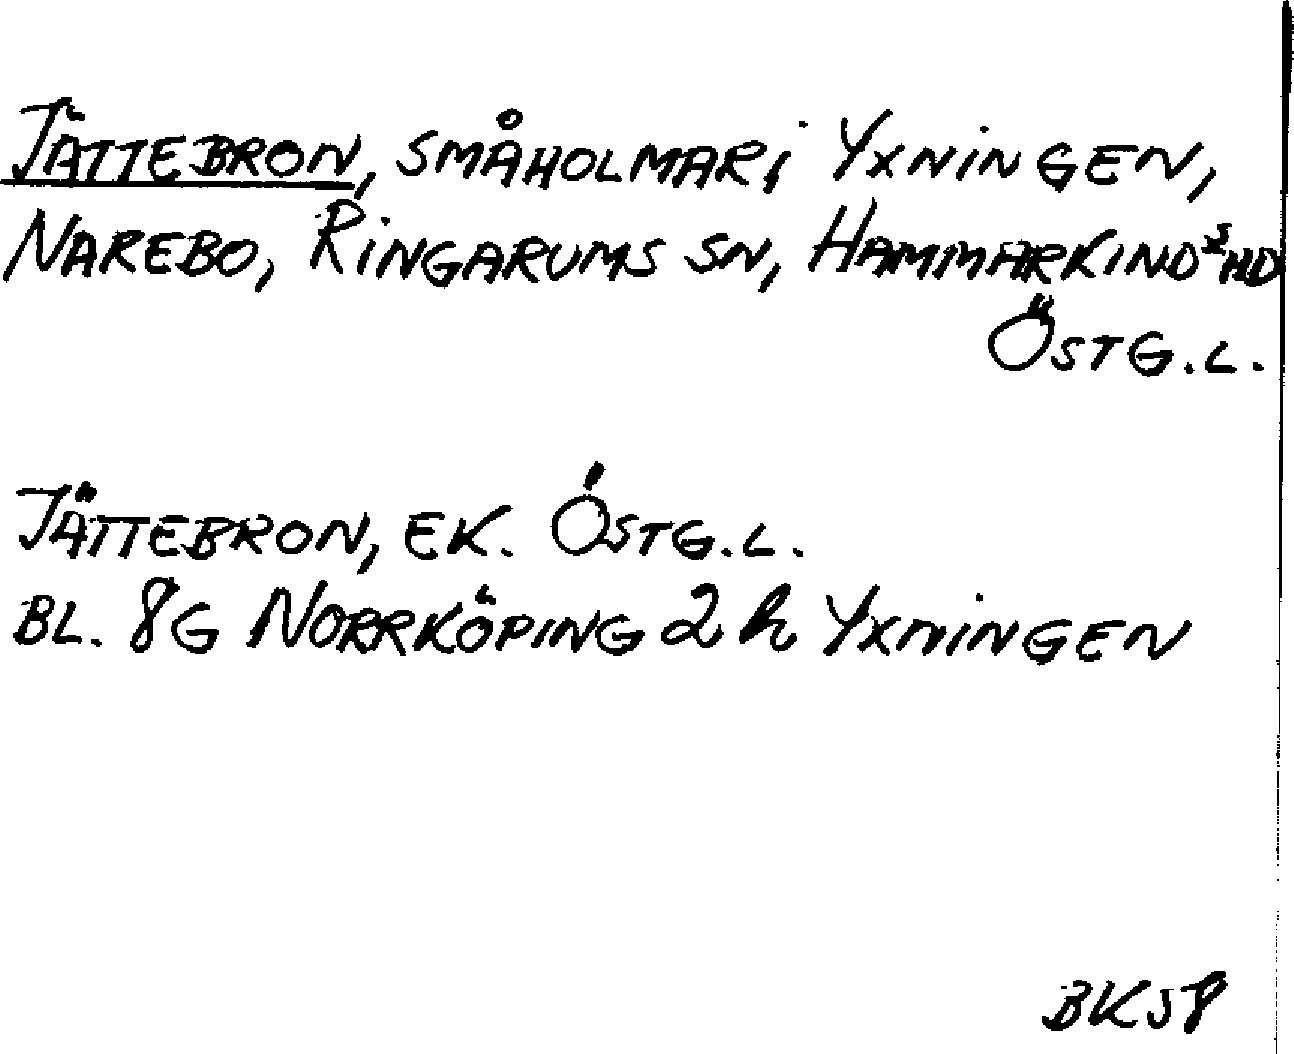 JÄTTEBRON, SMÅHOLMAR i YXNINGEN,
NAREBO, RINGARUMS SN, HAMMARKINDS HD
ÖSTG.L.
JÄTTEBRON, EK. ÖSTG.L.
BL. 8G NORRKÖPING 2h YXNINGEN